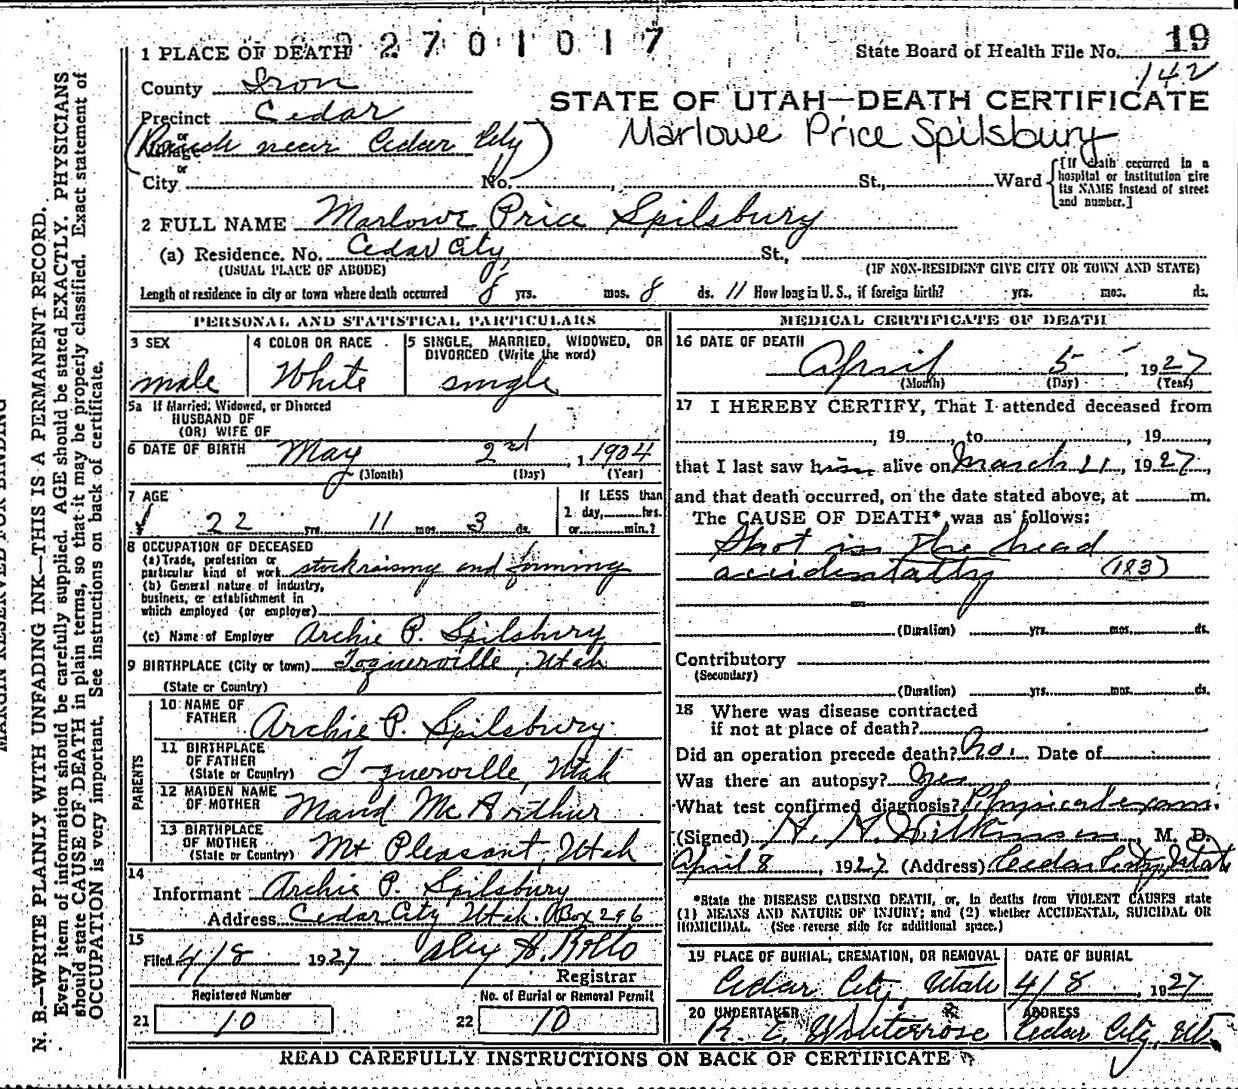 1 PLACE OF DEATH 2 7 0 1 0 1 7 State Board of Health File No. 19
142
County Iron
STATE OF UTAH—DEATH CERTIFICATE
Precinct Cedar
Marlowe Price Spilsbury
or
Village (Ranch near Cedar City)
or
City No. , St., Ward {[If death occurred in a hospital or institution give its NAME instead of street and number.]
2 FULL NAME Marlowe Price Spilsbury
(a) Residence. No. Cedar City St.,
(USUAL PLACE OF ABODE) (IF NON-RESIDENT GIVE CITY OR TOWN AND STATE)
Length of residence in city or town where death occurred 8 yrs. mos. 8 ds. 11 How long in U. S., if foreign birth? yrs. mos. ds.
PERSONAL AND STATISTICAL PARTICULARS
3 SEX
male
4 COLOR OR RACE
White
5 SINGLE, MARRIED, WIDOWED, OR
DIVORCED (Write the word)
single
5a If Married, Widowed, or Divorced
HUSBAND OF
(OR) WIFE OF
6 DATE OF BIRTH May 2nd, 1904
(Month) (Day) (Year)
7 AGE
22 yrs. 11 mos. 3 ds.
If LESS than
1 day, hrs.
or min.?
8 OCCUPATION OF DECEASED
(a) Trade, profession or
particular kind of work stockraising and farming
(b) General nature of industry,
business, or establishment in
which employed (or employer)
(c) Name of Employer Archie P. Spilsbury
9 BIRTHPLACE (City or town) Toquerville, Utah
(State or Country)
PARENTS
10 NAME OF
FATHER Archie P. Spilsbury
11 BIRTHPLACE
OF FATHER
(State or Country) Toquerville, Utah
12 MAIDEN NAME
OF MOTHER Maud McArthur
13 BIRTHPLACE
OF MOTHER
(State or Country) Mt Pleasant, Utah
14
Informant Archie P. Spilsbury
Address Cedar City Utah. Box 296
15
Filed 4/8 1927
Registrar
Registered Number
21 10
No. of Burial or Removal Permit
22 10
MEDICAL CERTIFICATE OF DEATH
16 DATE OF DEATH
April 5 1927
(Month) (Day) (Year)
17 I HEREBY CERTIFY, That I attended deceased from
, 19 , to , 19 ,
that I last saw him alive on March 11, 1927,
and that death occurred, on the date stated above, at m.
The CAUSE OF DEATH* was as follows:
Shot in the head
accidentally (183)
(Duration) yrs. mos. ds.
Contributory
(Secondary)
(Duration) yrs. mos. ds.
18 Where was disease contracted
if not at place of death?
Did an operation precede death? No. Date of
Was there an autopsy? Yes
What test confirmed diagnosis? Physical exam.
(Signed) H. H. Wilkinson, M. D.
April 8, 1927 (Address) Cedar City, Utah
*State the DISEASE CAUSING DEATH, or, in deaths from VIOLENT CAUSES state
(1) MEANS AND NATURE OF INJURY; and (2) whether ACCIDENTAL, SUICIDAL OR
HOMICIDAL. (See reverse side for additional space.)
19 PLACE OF BURIAL, CREMATION, OR REMOVAL
Cedar City, Utah
DATE OF BURIAL
4/8, 1927
20 UNDERTAKER
ADDRESS
Cedar City, Ut.
READ CAREFULLY INSTRUCTIONS ON BACK OF CERTIFICATE
MARGIN RESERVED FOR BINDING
N. B.—WRITE PLAINLY WITH UNFADING INK—THIS IS A PERMANENT RECORD.
Every item of information should be carefully supplied. AGE should be stated EXACTLY. PHYSICIANS
should state CAUSE OF DEATH in plain terms, so that it may be properly classified. Exact statement of
OCCUPATION is very important. See instructions on back of certificate.